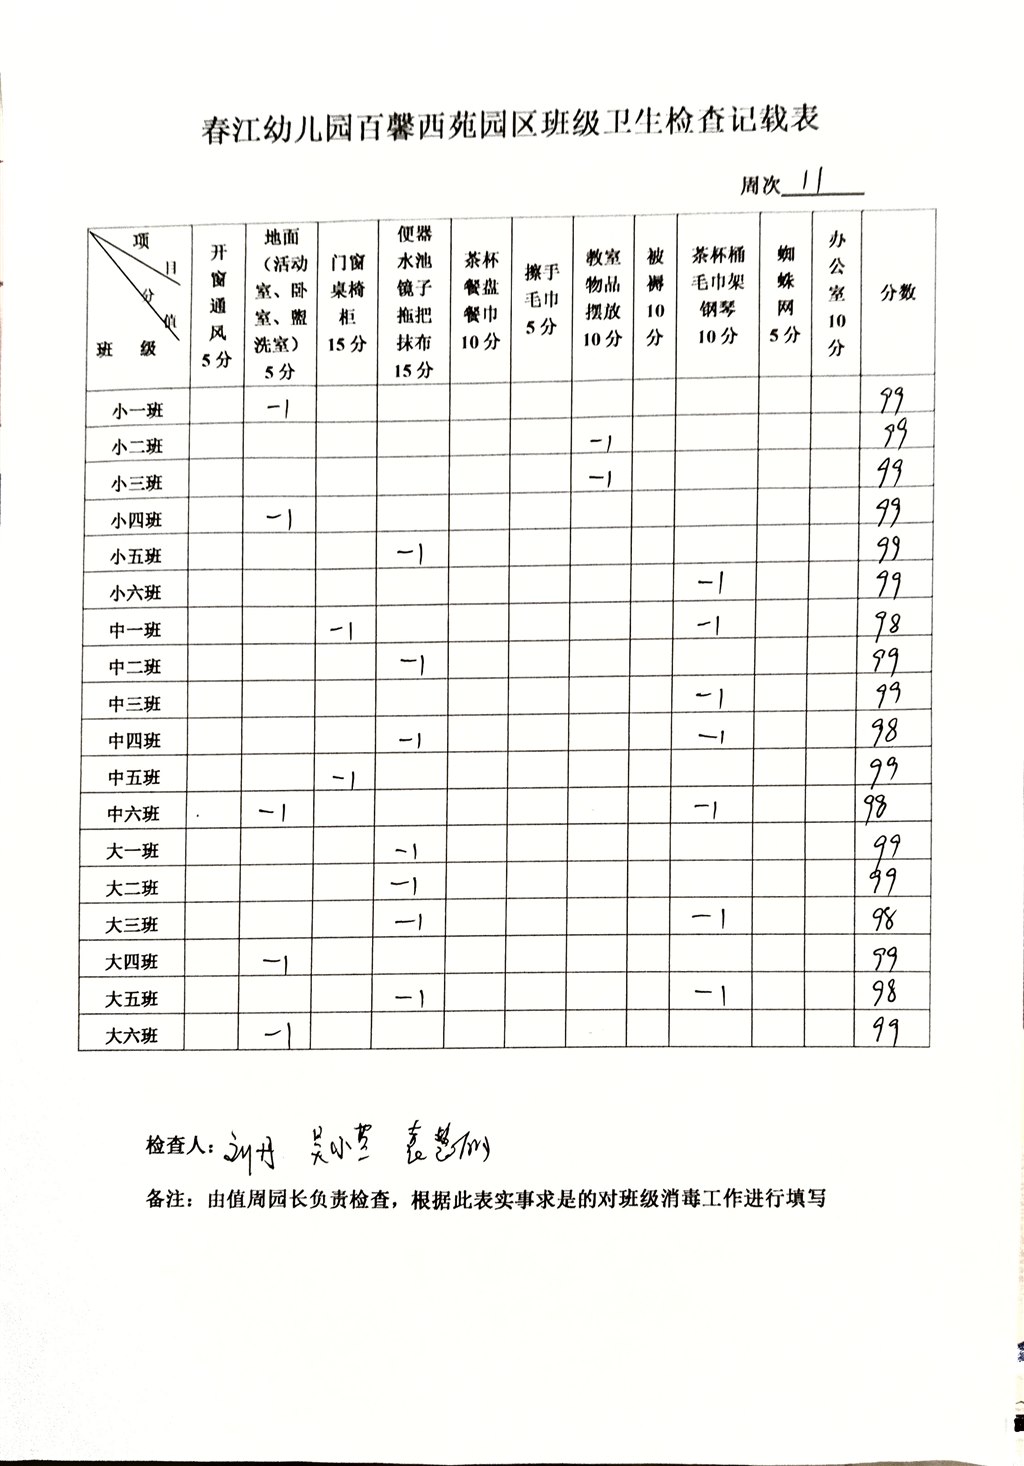 春江幼儿园百馨西苑园区班级卫生检查记载表
周次 11
项目 分值 班级 开窗通风5分 地面（活动室、卧室、盥洗室）5分 门窗桌椅柜15分 便器水池镜子拖把抹布15分 茶杯餐盘餐巾10分 擦手毛巾5分 教室物品摆放10分 被褥10分 茶杯桶毛巾架钢琴10分 蜘蛛网5分 办公室10分 分数
小一班 -1 99
小二班 -1 99
小三班 -1 99
小四班 -1 99
小五班 -1 99
小六班 -1 99
中一班 -1 -1 98
中二班 -1 99
中三班 -1 99
中四班 -1 -1 98
中五班 -1 99
中六班 -1 -1 98
大一班 -1 99
大二班 -1 99
大三班 -1 -1 98
大四班 -1 99
大五班 -1 -1 98
大六班 -1 99
检查人：刘丹 吴小兰 袁慧
备注：由值周园长负责检查，根据此表实事求是的对班级消毒工作进行填写